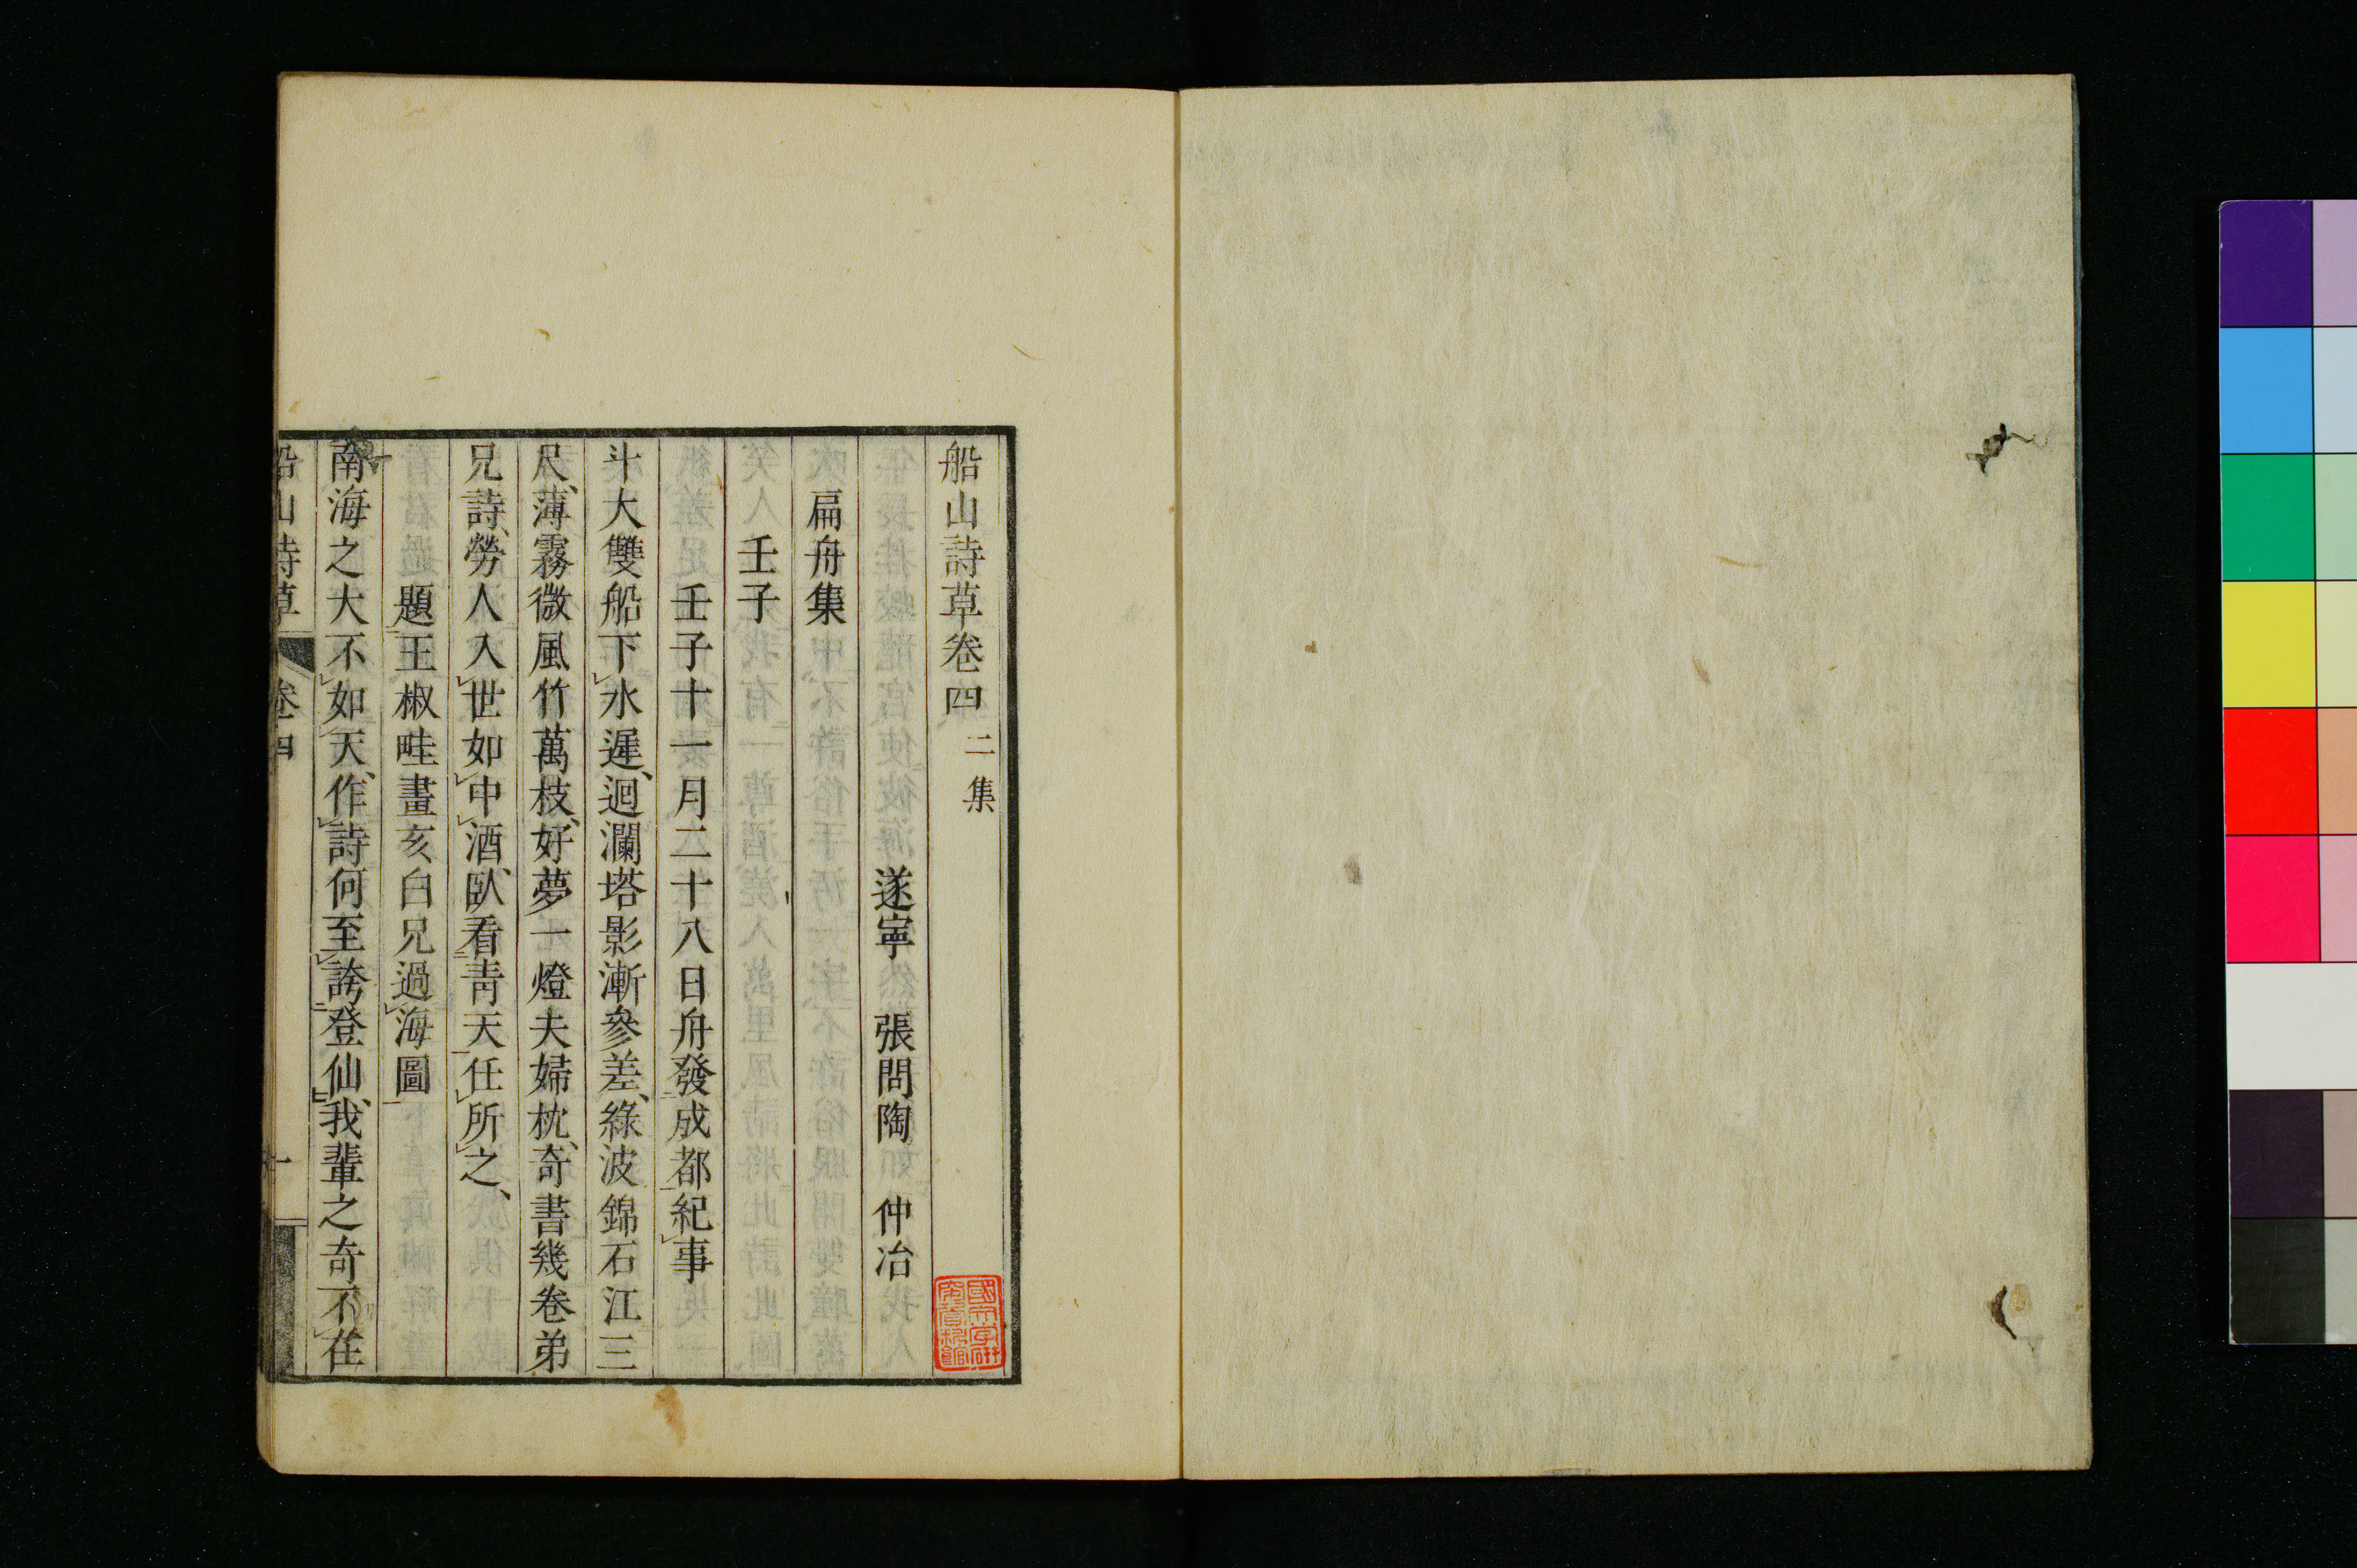 船山詩草卷四 二集
遂寧 張問陶 仲冶
扁舟集
壬子
壬子十一月二十八日舟發成都紀事
斗大雙船下水遲、迴瀾塔影漸參差、綠波錦石江三
尺、薄霧微風竹萬枝、好夢一燈夫婦枕、奇書幾卷弟
兄詩、勞人入世如中酒、臥看靑天任所之、
題王椒畦畫亥白兄過海圖
南海之大不如天、作詩何至誇登仙、我輩之奇不在
船山詩草 卷四 一